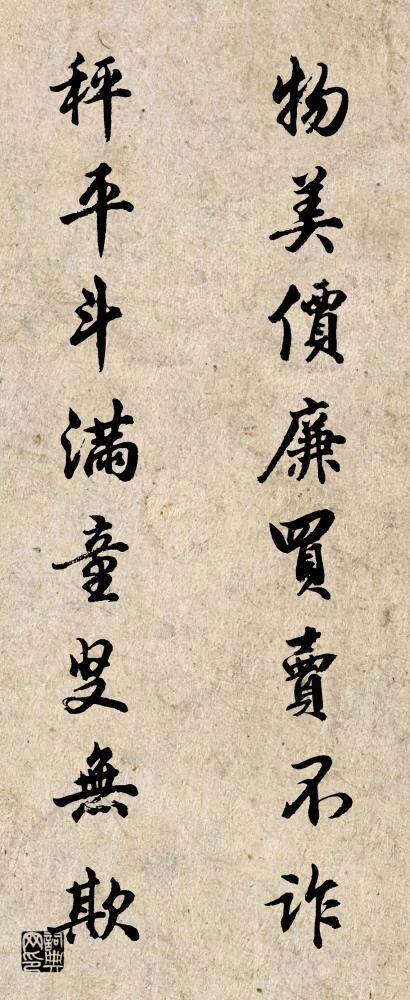 物美價廉買賣不詐
秤平斗滿童叟無欺